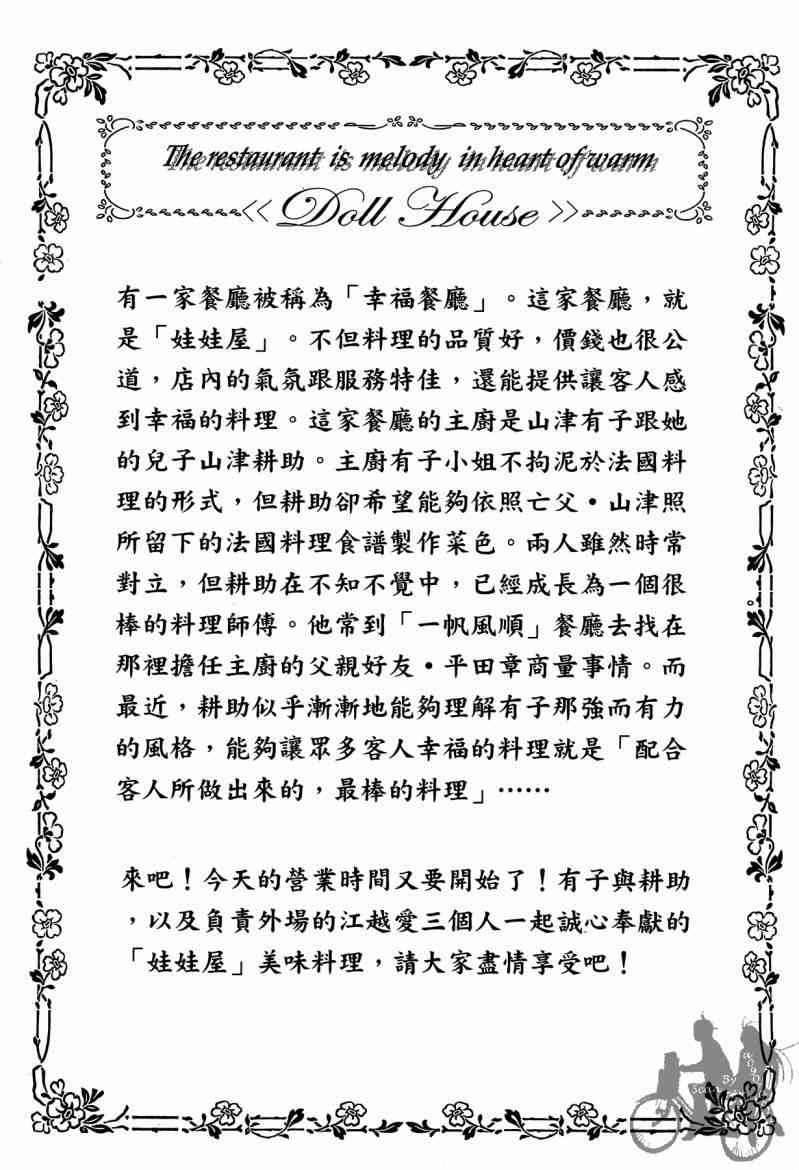 The restaurant is melody in heart of warm
《 Doll House 》
有一家餐廳被稱為「幸福餐廳」。這家餐廳，就
是「娃娃屋」。不但料理的品質好，價錢也很公
道，店內的氣氛跟服務特佳，還能提供讓客人感
到幸福的料理。這家餐廳的主廚是山津有子跟她
的兒子山津耕助。主廚有子小姐不拘泥於法國料
理的形式，但耕助卻希望能夠依照亡父·山津照
所留下的法國料理食譜製作菜色。兩人雖然時常
對立，但耕助在不知不覺中，已經成長為一個很
棒的料理師傅。他常到「一帆風順」餐廳去找在
那裡擔任主廚的父親好友·平田章商量事情。而
最近，耕助似乎漸漸地能夠理解有子那強而有力
的風格，能夠讓眾多客人幸福的料理就是「配合
客人所做出來的，最棒的料理」……
來吧！今天的營業時間又要開始了！有子與耕助
，以及負責外場的江越愛三個人一起誠心奉獻的
「娃娃屋」美味料理，請大家盡情享受吧！
Scan By